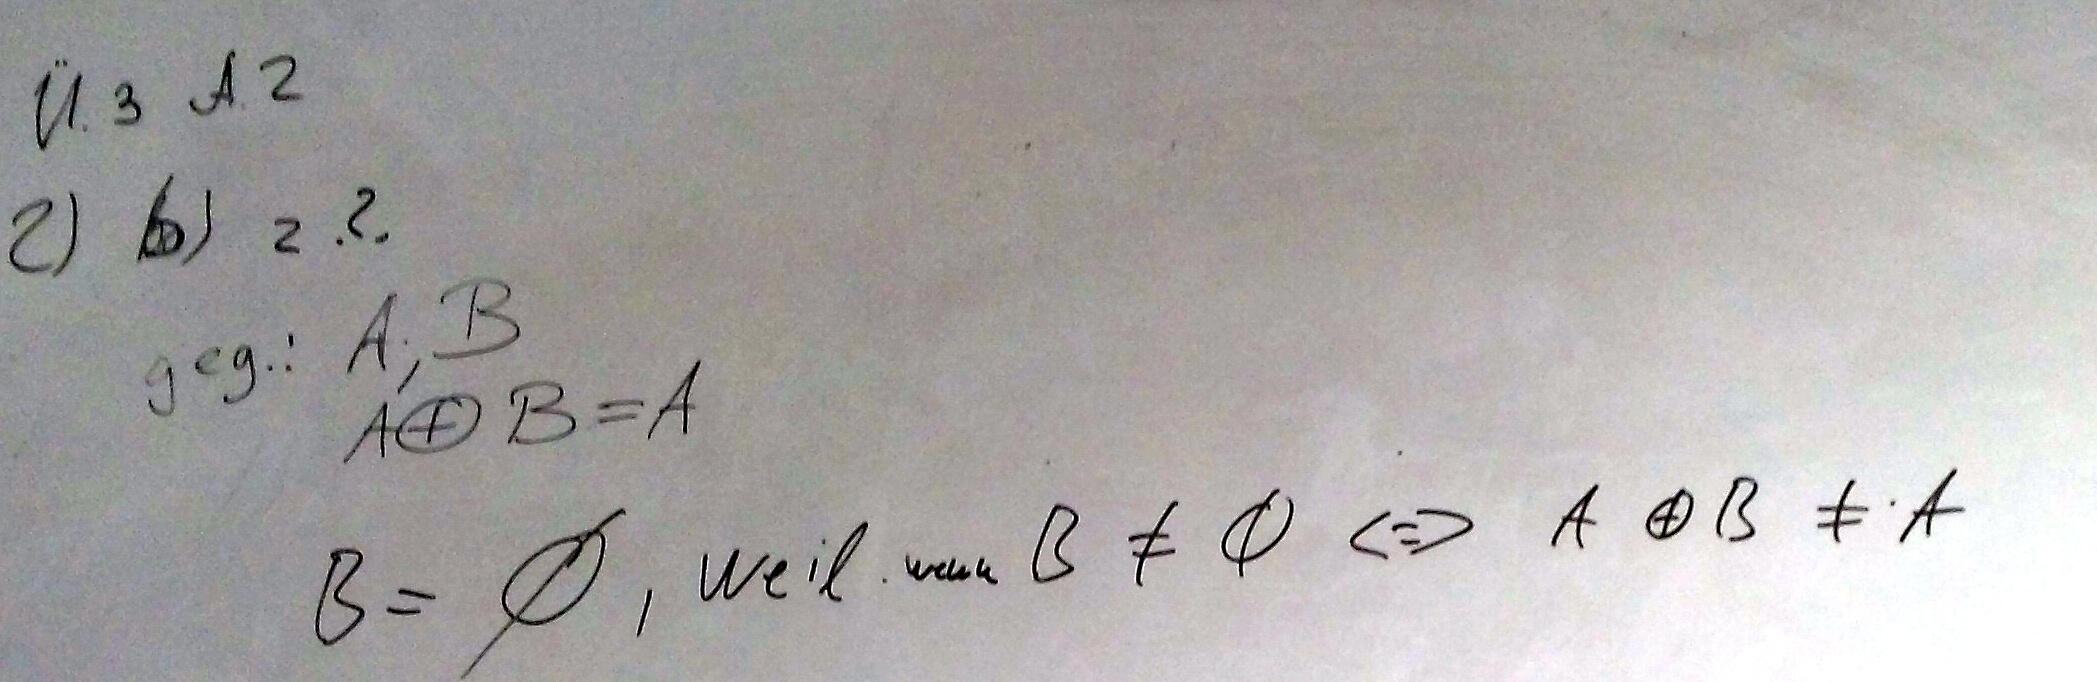 Ü. 3 A. 2
2) b) z.?.
geg.: A; B
A ⊕ B = A
B = ∅, weil wenn B ≠ ∅ <=> A ⊕ B ≠ A